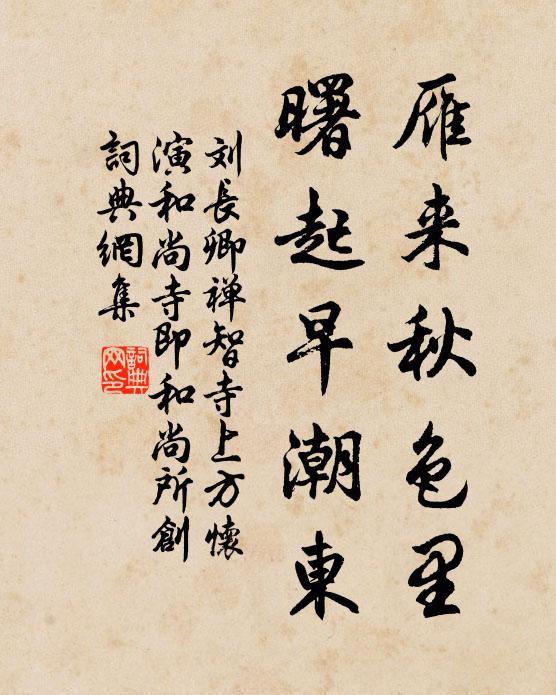 雁来秋色里
曙起早潮東
刘長卿禅智寺上方懷
演和尚寺即和尚所創
詞典網集
詞典網印